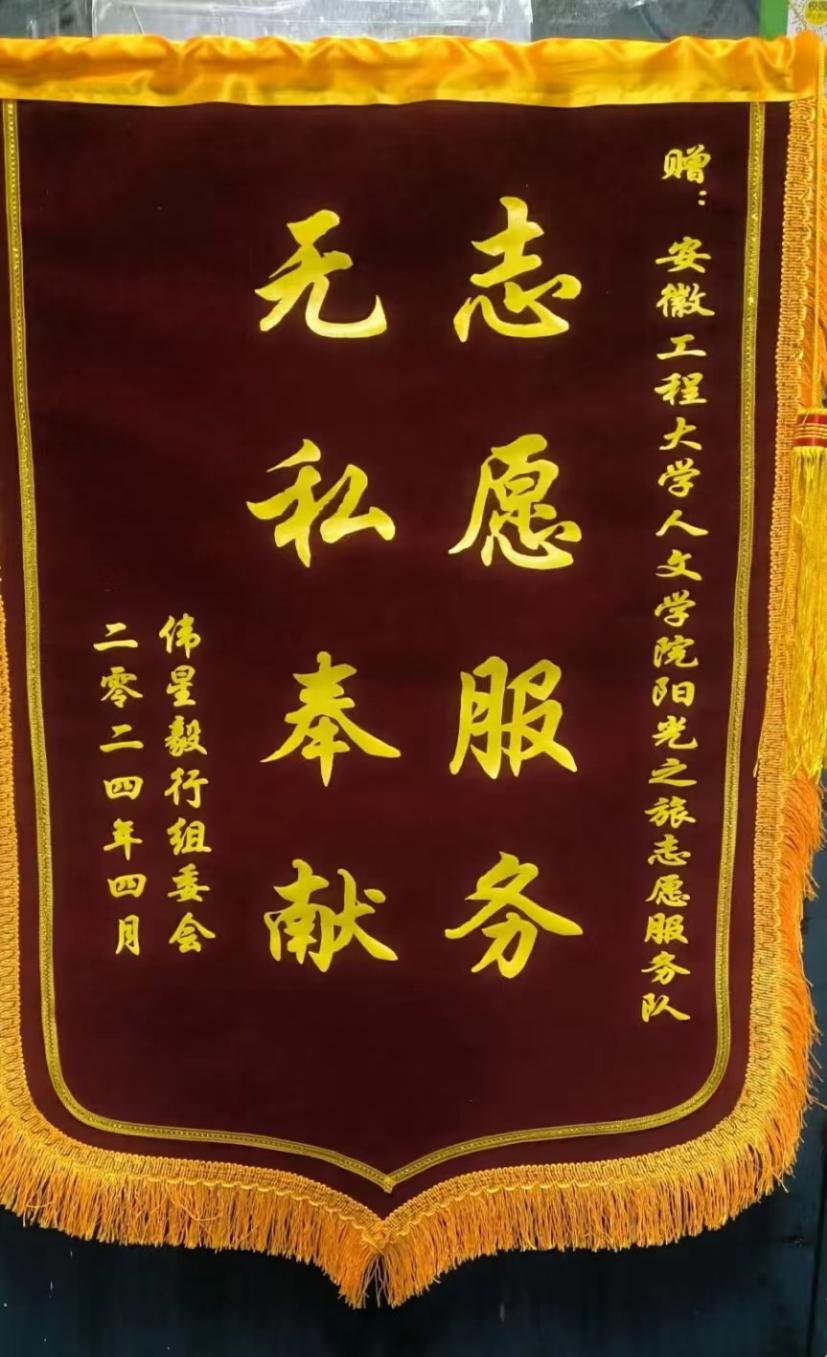 赠：安徽工程大学人文学院阳光之旅志愿服务队
志愿服务
无私奉献
伟星毅行组委会
二零二四年四月